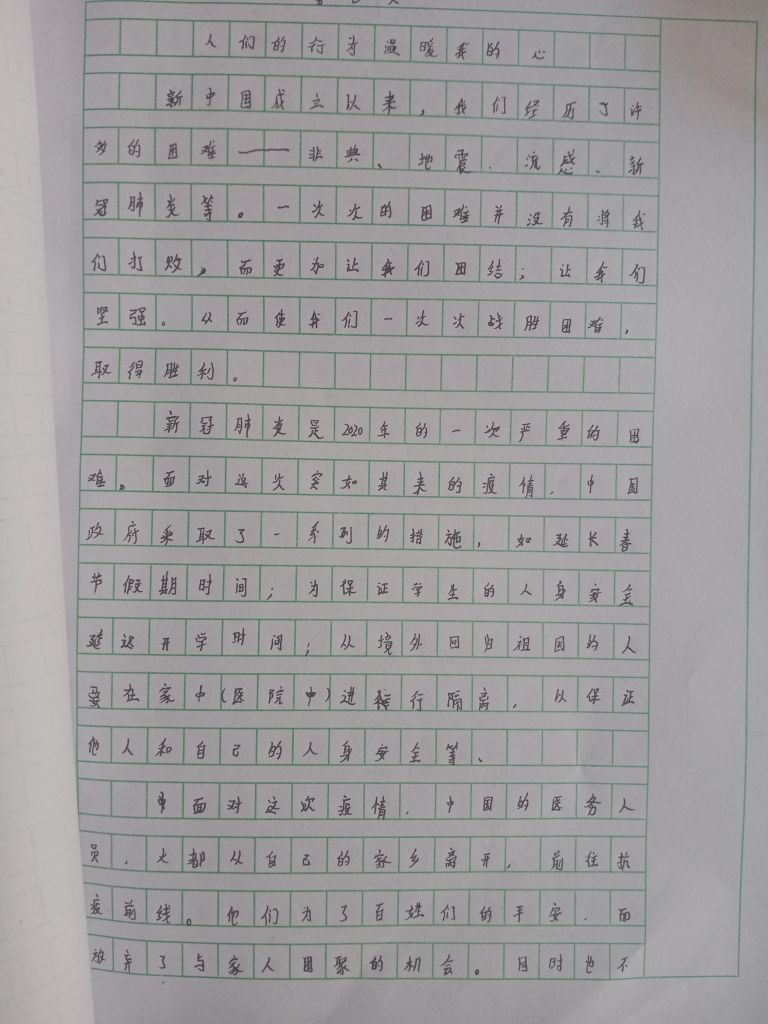 人们的行为温暖我的心
新中国成立以来，我们经历了许
多的困难——非典、地震、流感、新
冠肺炎等。一次次的困难并没有将我
们打败，而更加让我们团结；让我们
坚强。从而使我们一次次战胜困难，
取得胜利。
新冠肺炎是2020年的一次严重的困
难。面对这次突如其来的疫情，中国
政府采取了一系列的措施，如延长春
节假期时间；为保证学生的人身安全
延迟开学时间；从境外回归祖国的人
要在家中（医院中）进行隔离，以保证
他人和自己的人身安全等、
面对这次疫情，中国的医务人
员，大都从自己的家乡离开，前往抗
疫前线。他们为了百姓们的平安，而
放弃了与家人团聚的机会。同时也不